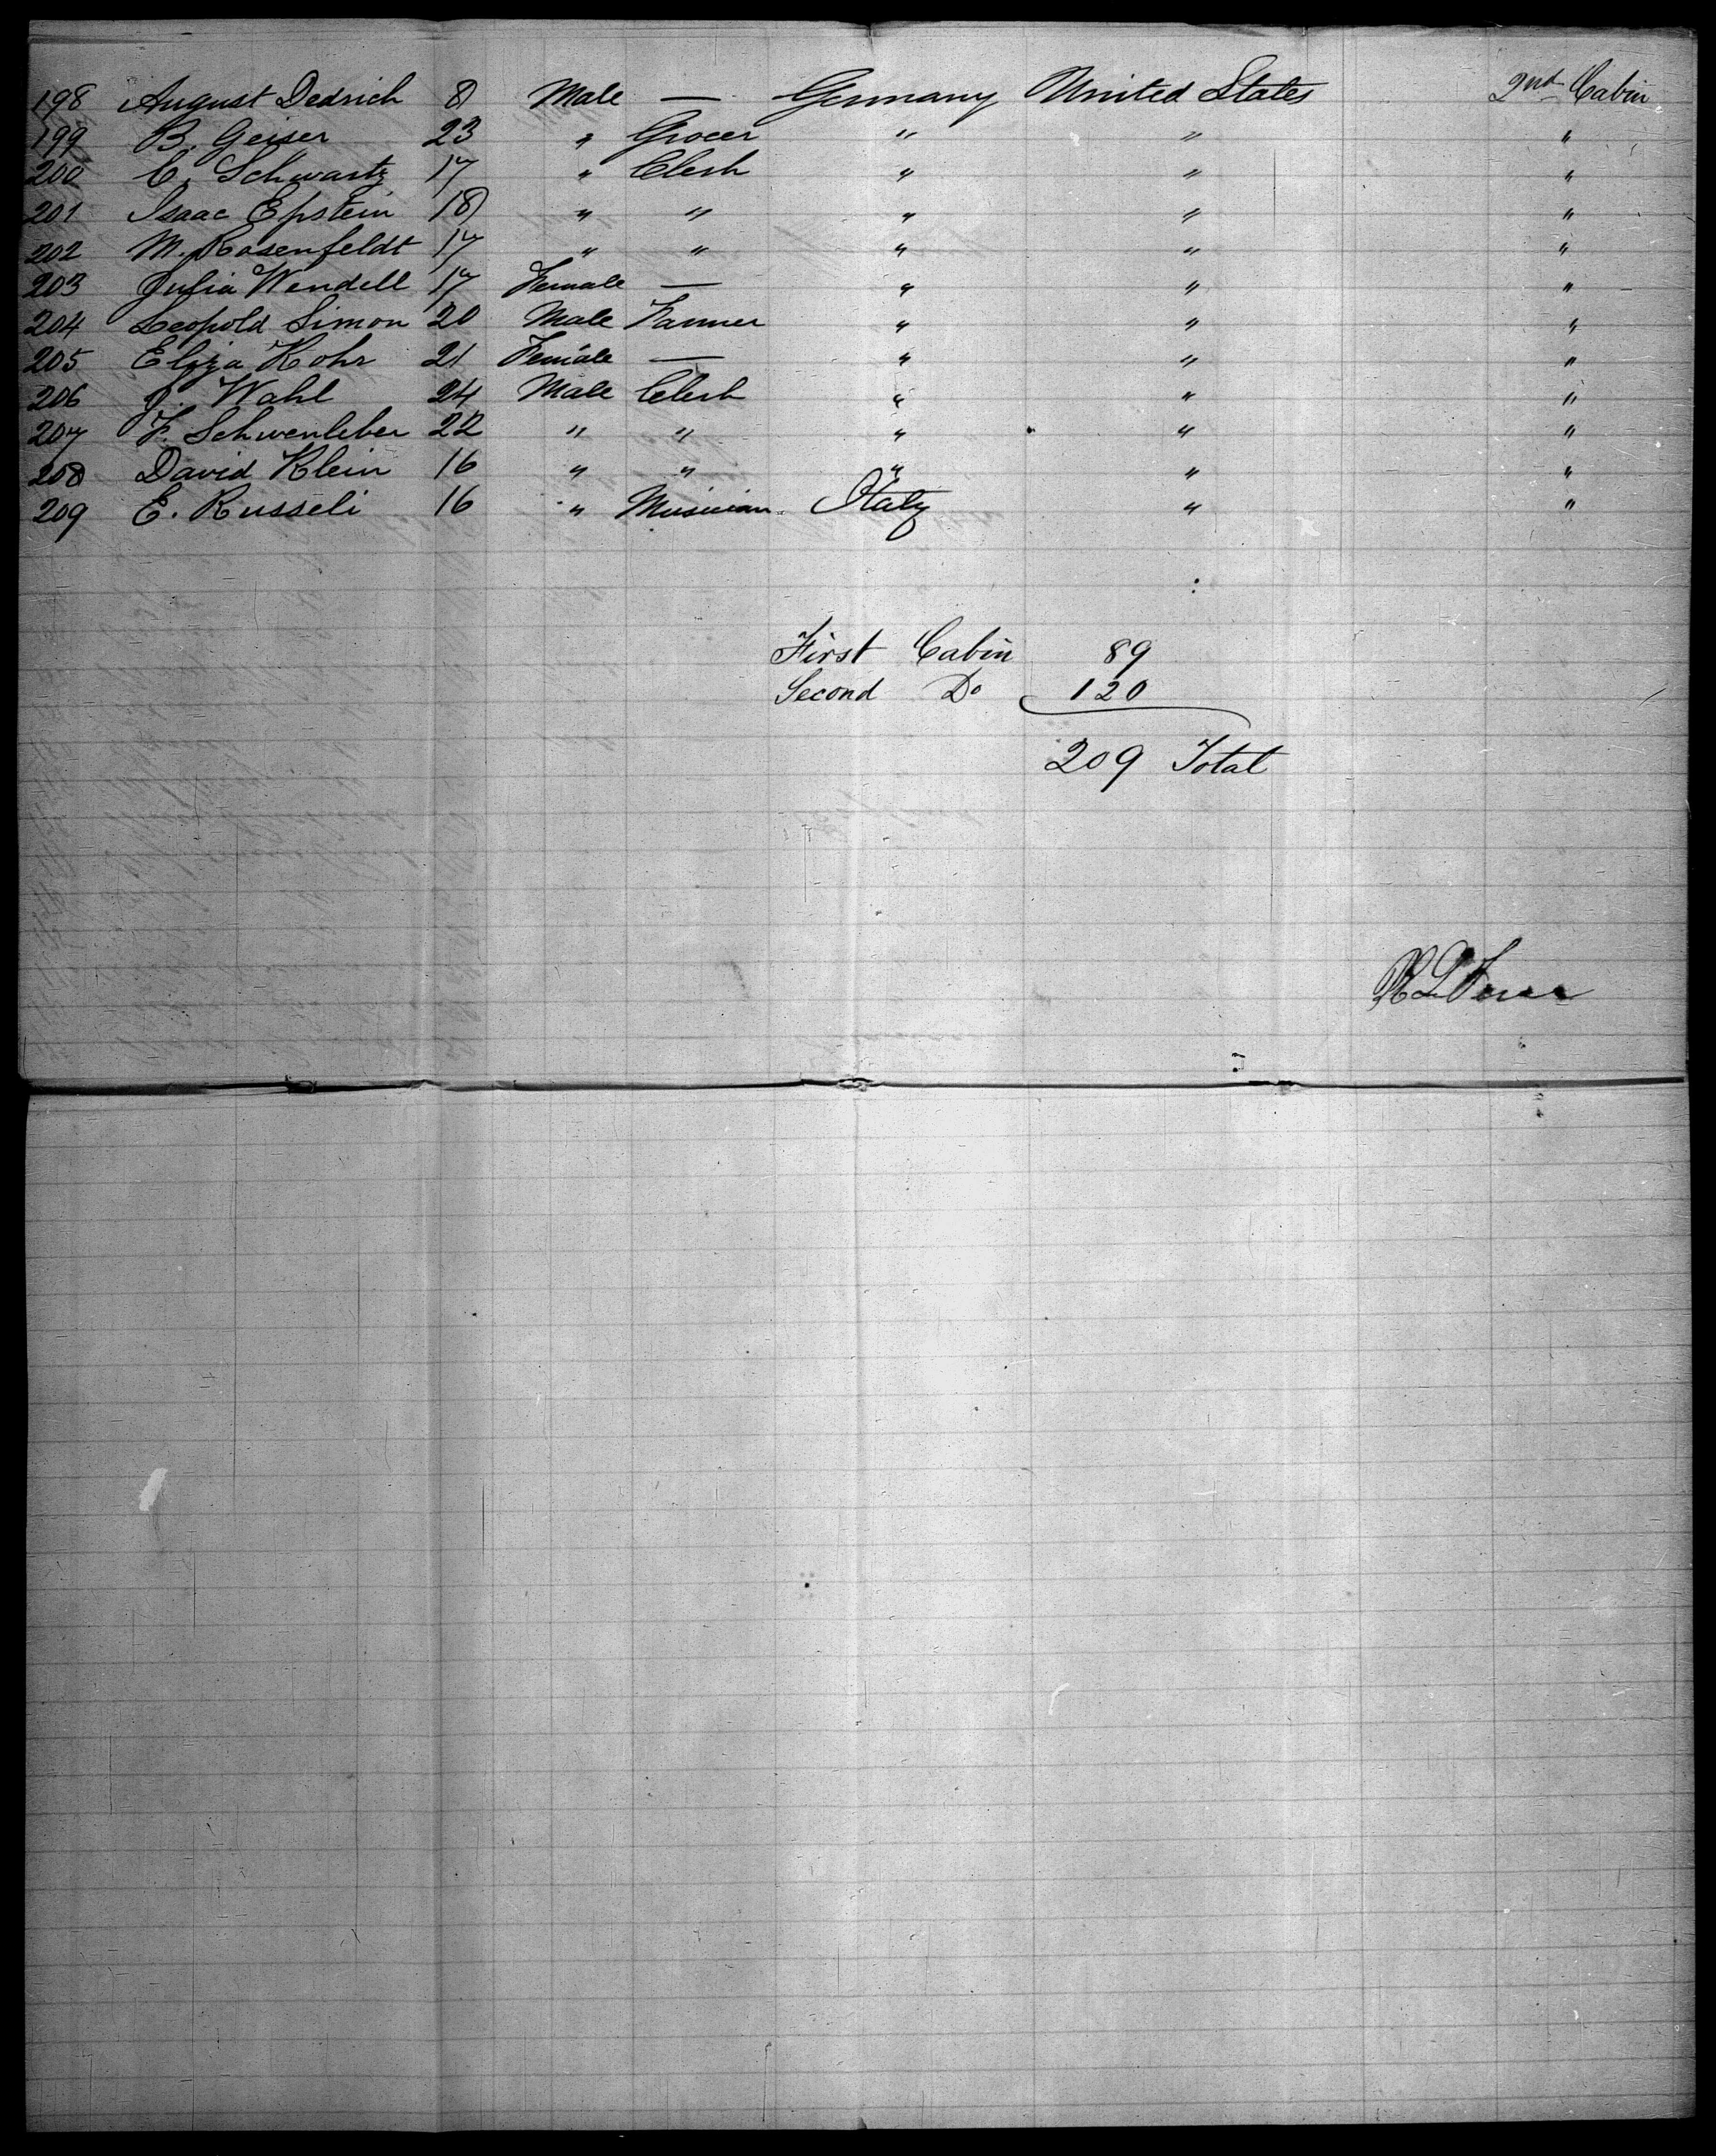 198 August Dedrich 8 Male — Germany United States 2nd Cabin
199 B. Geiser 23 " Grocer " " "
200 C. Schwartz 17 " Clerk " " "
201 Isaac Epstein 18 " " " " "
202 M. Rosenfeldt 17 " " " " "
203 Julia Wendell 17 Female — " " "
204 Leopold Simon 20 Male Farmer " " "
205 Eliza Kohr 21 Female — " " "
206 J. Wahl 24 Male Clerk " " "
207 F. Schwenleber 22 " " " " "
208 David Klein 16 " " " " "
209 E. Russeli 16 " Musician Italy " "
First Cabin 89
Second Do 120
209 Total